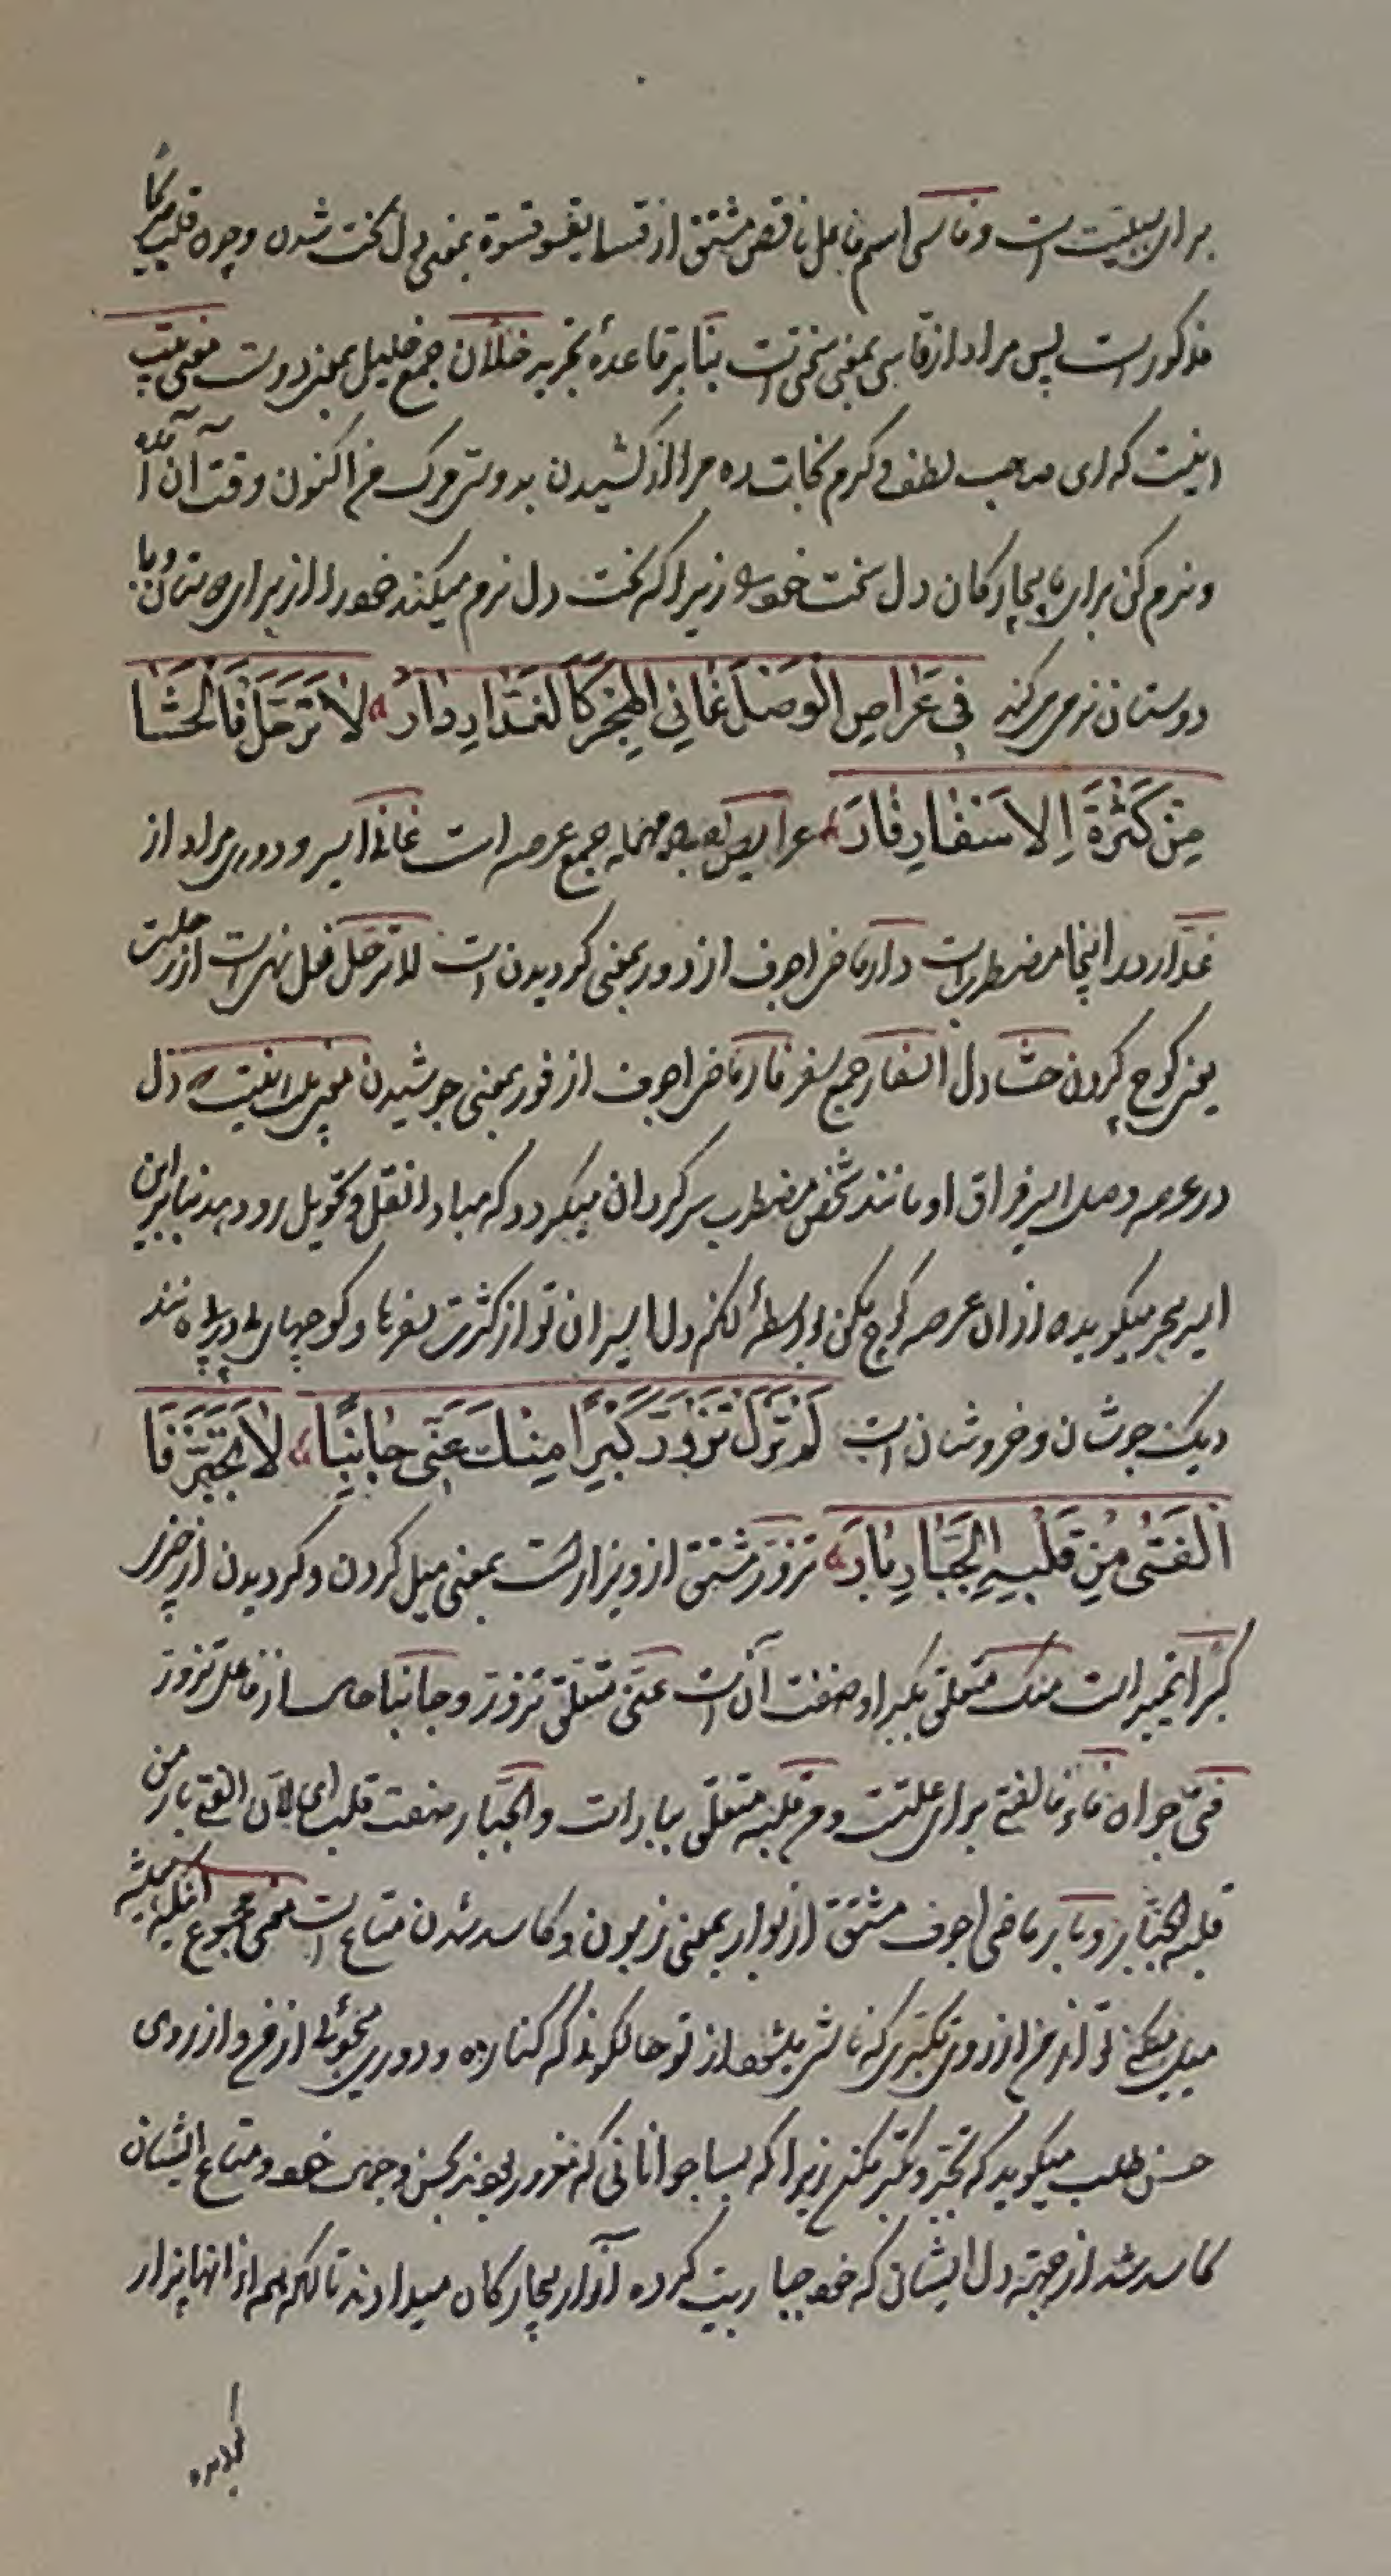 برای سببیت است و قاسی اسم فاعل ناقص مشتق از قسا یقسو قسوة بمعنی دل سخت شدن و چون قلب
مذکور است پس مراد از قاسی بمعنی سخت است بنا بر قاعدهٔ تجرید خلّان جمع خلیل بمعنی دوست معنی بیت
اینست که ای صاحب لطف و کرم نجات ده مرا از کشیدن بدوش مرگ من اکنون وقت آن آمده
و نرم کن برای بیچارکان دل سخت خود را زیرا که سخت دل نرم میکند خود را از برای دوستان و با
دوستان نرمی میکند فی عَراصِ الوَصلِ عَانی الهَجرِ کَالغَدّارِ دَارَ لا تَرحَل فَالحَشَا
مِن کَثرَةِ الاَسفَارِ فَارَ عراص بصاد مهمله جمع عرصه است عانی اسیر و دوری مراد از
غدّار در اینجا مضطرب است دار ماضی اجوف از دور بمعنی کردیدن است لا ترحل فعل نهی است از رحلت
یعنی کوچ کردن حشا دل اسفار جمع سفر فار ماضی اجوف از فور بمعنی جوشیدن معنی بیت اینست دل
در عرصه وصل اسیر فراق او مانند شخص مضطرب سرکردان میکردد که مبادا نقل و تحویل رو دهد بنابراین
اسیر هجر میکوید از آن عرصه کوچ مکن بواسطهٔ آنکه دل اسیران تو از کثرت سفرها و کوچهای مانند
دیک جوشان و خروشان است کَم تَزَوَّرَ کِبرًا مِنکَ عَنّی جَانِبًا لا تَبَختَر فَا
لفَتی مِن قَلبِهِ الجَبَّارِ بَارَ تزور مشتق از ازورار است بمعنی میل کردن و کردیدن از چیزی
کبرا تمییز است منک متعلق بکبرا و صفت آن است عنّی متعلق تزور و جانبا حال از فاعل تزور
فتی جوان فاء فالفتی برای علّت و من قلبه متعلق ببار است و الجبّار صفت قلب ای لان الفتی بار من
قلبه الجبّار و بار ماضی اجوف مشتق از بوار بمعنی زبون و کاسد شدن متاع است معنی مجموع
میل میکنی تو از من از روی تکبری که ناشی میشود از تو حالکونی که کناره و دوری میجوئی از من و از روی
حسن طلب میکوید که تبختر و تکبر مکن زیرا که بسا جوانانی که مغرور بودند بحسن وجه خود و متاع ایشان
کاسد شد از جهة دل ایشان که خود جباریت کرده آزار بیچارکان میدادند تا آنکه همه از آنها بیزار